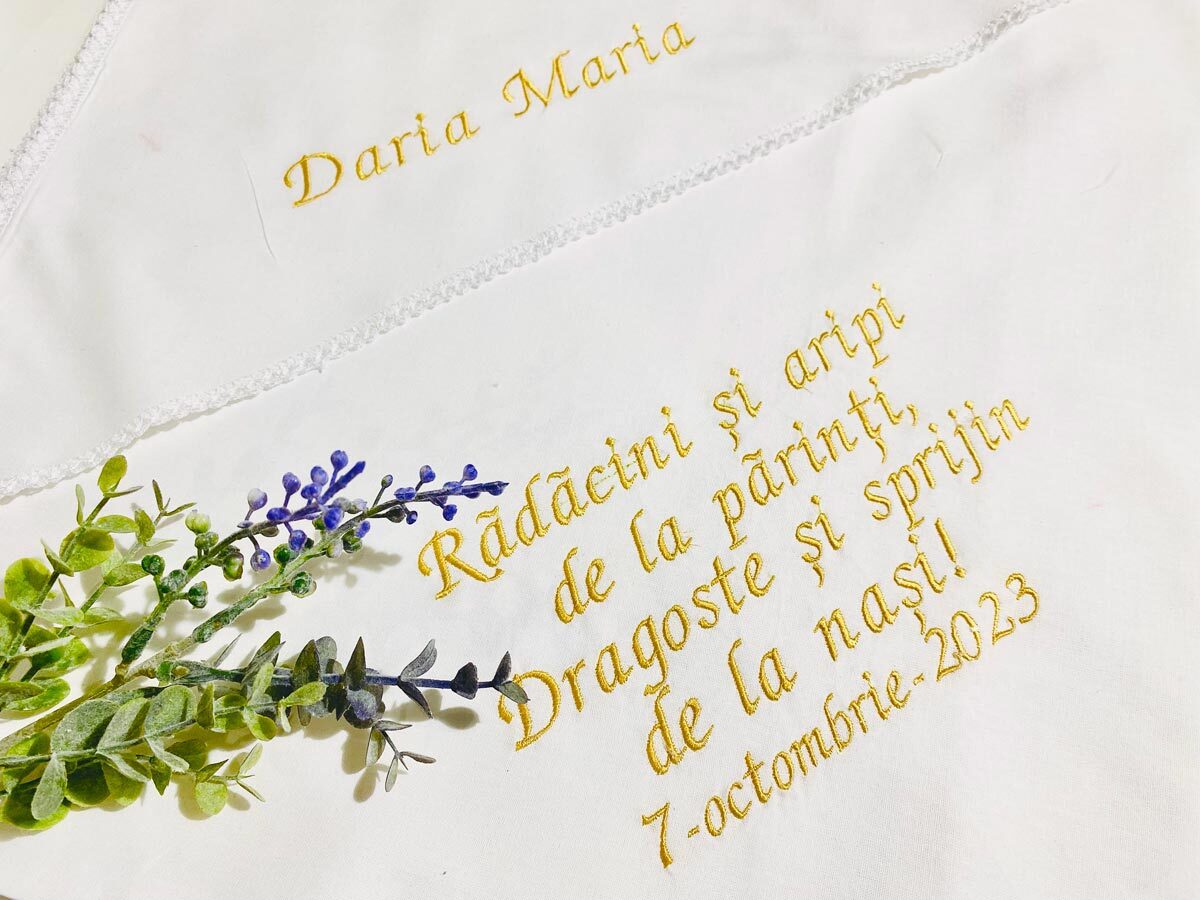 Daria Maria
Rădăcini și aripi
de la părinți,
Dragoste și sprijin
de la nași!
7-octombrie-2023